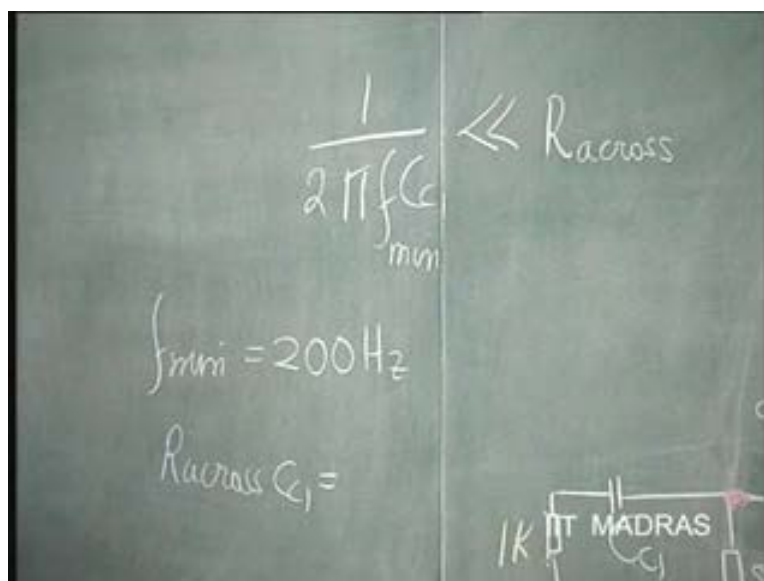 1 / 2πf_min C_c << R_across
f_min = 200 Hz
R_across C_c1 =
1K
IIT MADRAS
C_c1